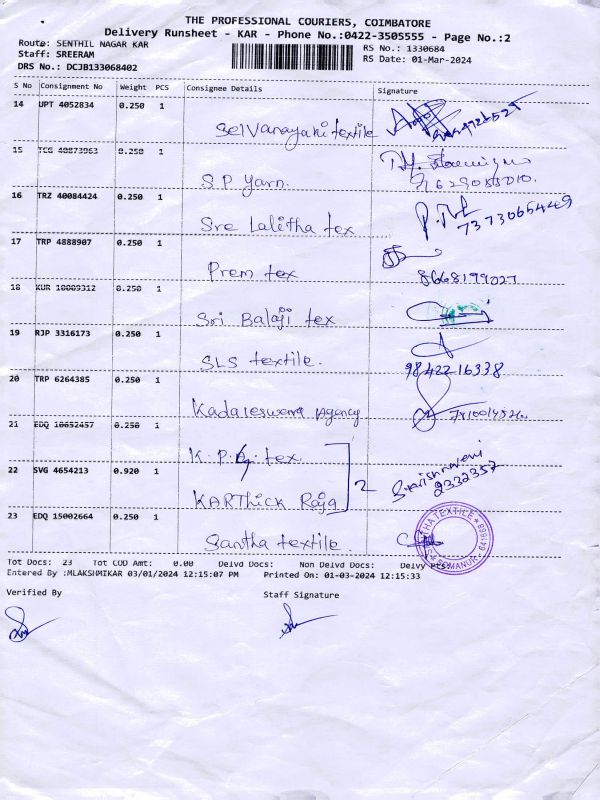 THE PROFESSIONAL COURIERS, COIMBATORE
Delivery Runsheet - KAR - Phone No.:0422-3505555 - Page No.:2
Route: SENTHIL NAGAR KAR
RS No.: 1330684
Staff: SREERAM
RS Date: 01-Mar-2024
DRS No.: DCJB133068402
S No Consignment No Weight PCS Consignee Details Signature
14 UPT 4052834 0.250 1
Selvanayaki textile
15 40873963 0.250 1
S.P yarn.
16 TRZ 40084424 0.250 1
Sre Lalitha tex
17 TRP 4888907 0.250 1
Prem tex 8668199027
18 KUR 10009312 0.250 1
Sri Balaji tex
19 RJP 3316173 0.250 1
SLS textile. 9842216338
20 TRP 6264385 0.250 1
Kadareswara Agency
21 EDQ 10652457 0.250 1
K.P. tex.
22 SVG 4654213 0.920 1
2
KARThick Raja 2332352
23 EDQ 15002664 0.250 1
Santha textile.
Tot Docs: 23 Tot COD Amt: 0.00 Delvd Docs: Non Delvd Docs: Delvy Pts:
Entered By :MLAKSHMIKAR 03/01/2024 12:15:07 PM Printed On: 01-03-2024 12:15:33
Verified By Staff Signature